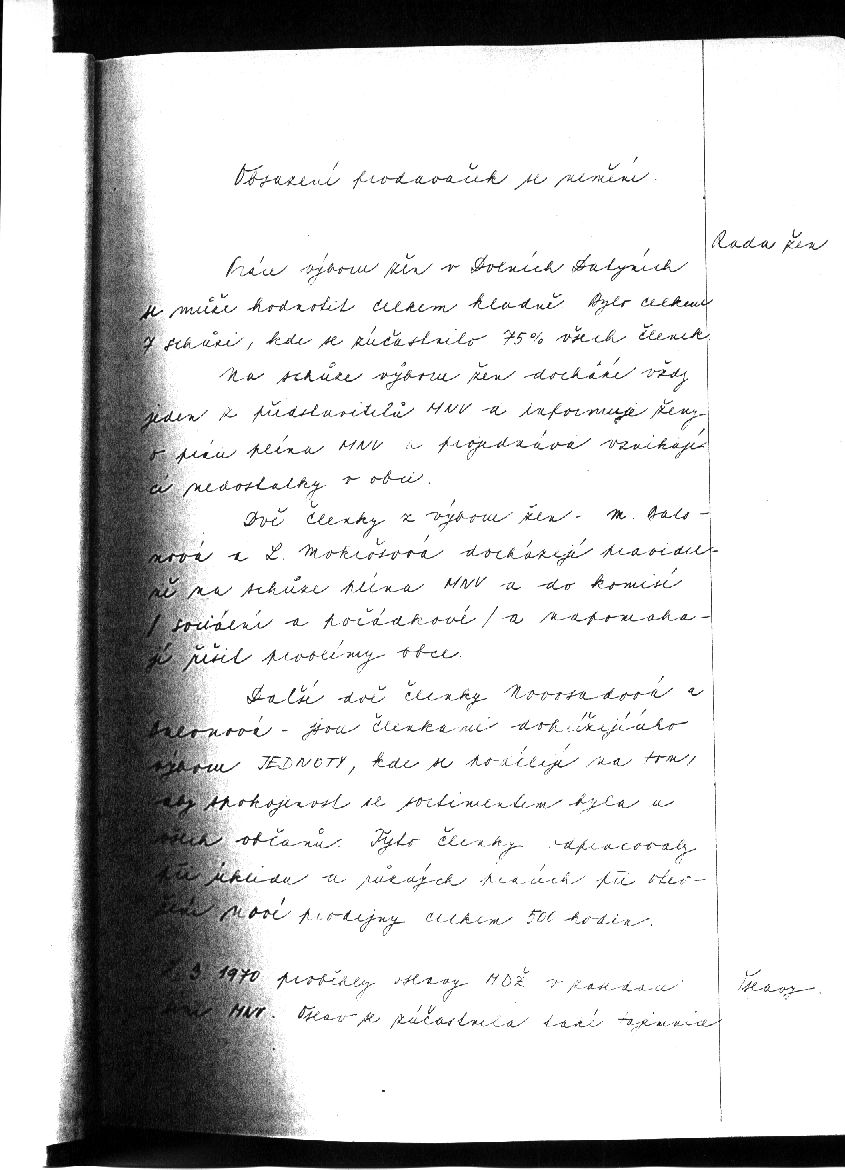 Obsazení prodavaček se nemění.
Rada žen
Práce výboru žen v Dolních Datyních
se může hodnotit celkem kladně Bylo celkem
7 schůzí, kde se zúčastnilo 75% všech členek
Na schůze výboru žen dochází vždy
jeden z představitelů MNV a informuje ženy
o práci pléna MNV a projednává vznikají
cí nedostatky v obci.
Dvě členky z výboru žen - M.
nová a L. Mokrošová docházejí pravidel-
ně na schůze pléna MNV a do komisí
/ sociální a pořádkové / a napomáha-
jí řešit problémy obce.
Další dvě členky Novosadová a
- jsou členkami dohlížejícího
výboru JEDNOTY, kde se podílejí na tom,
aby spokojenost se sortimentem byla u
všech občanů. Tyto členky odpracovaly
při úklidu a různých pracích při otev-
ření nové prodejny celkem 500 hodin.
3. 1970 proběhly oslavy MDŽ v
Oslavy.
MNV. Oslav se zúčastnila také tajemnice